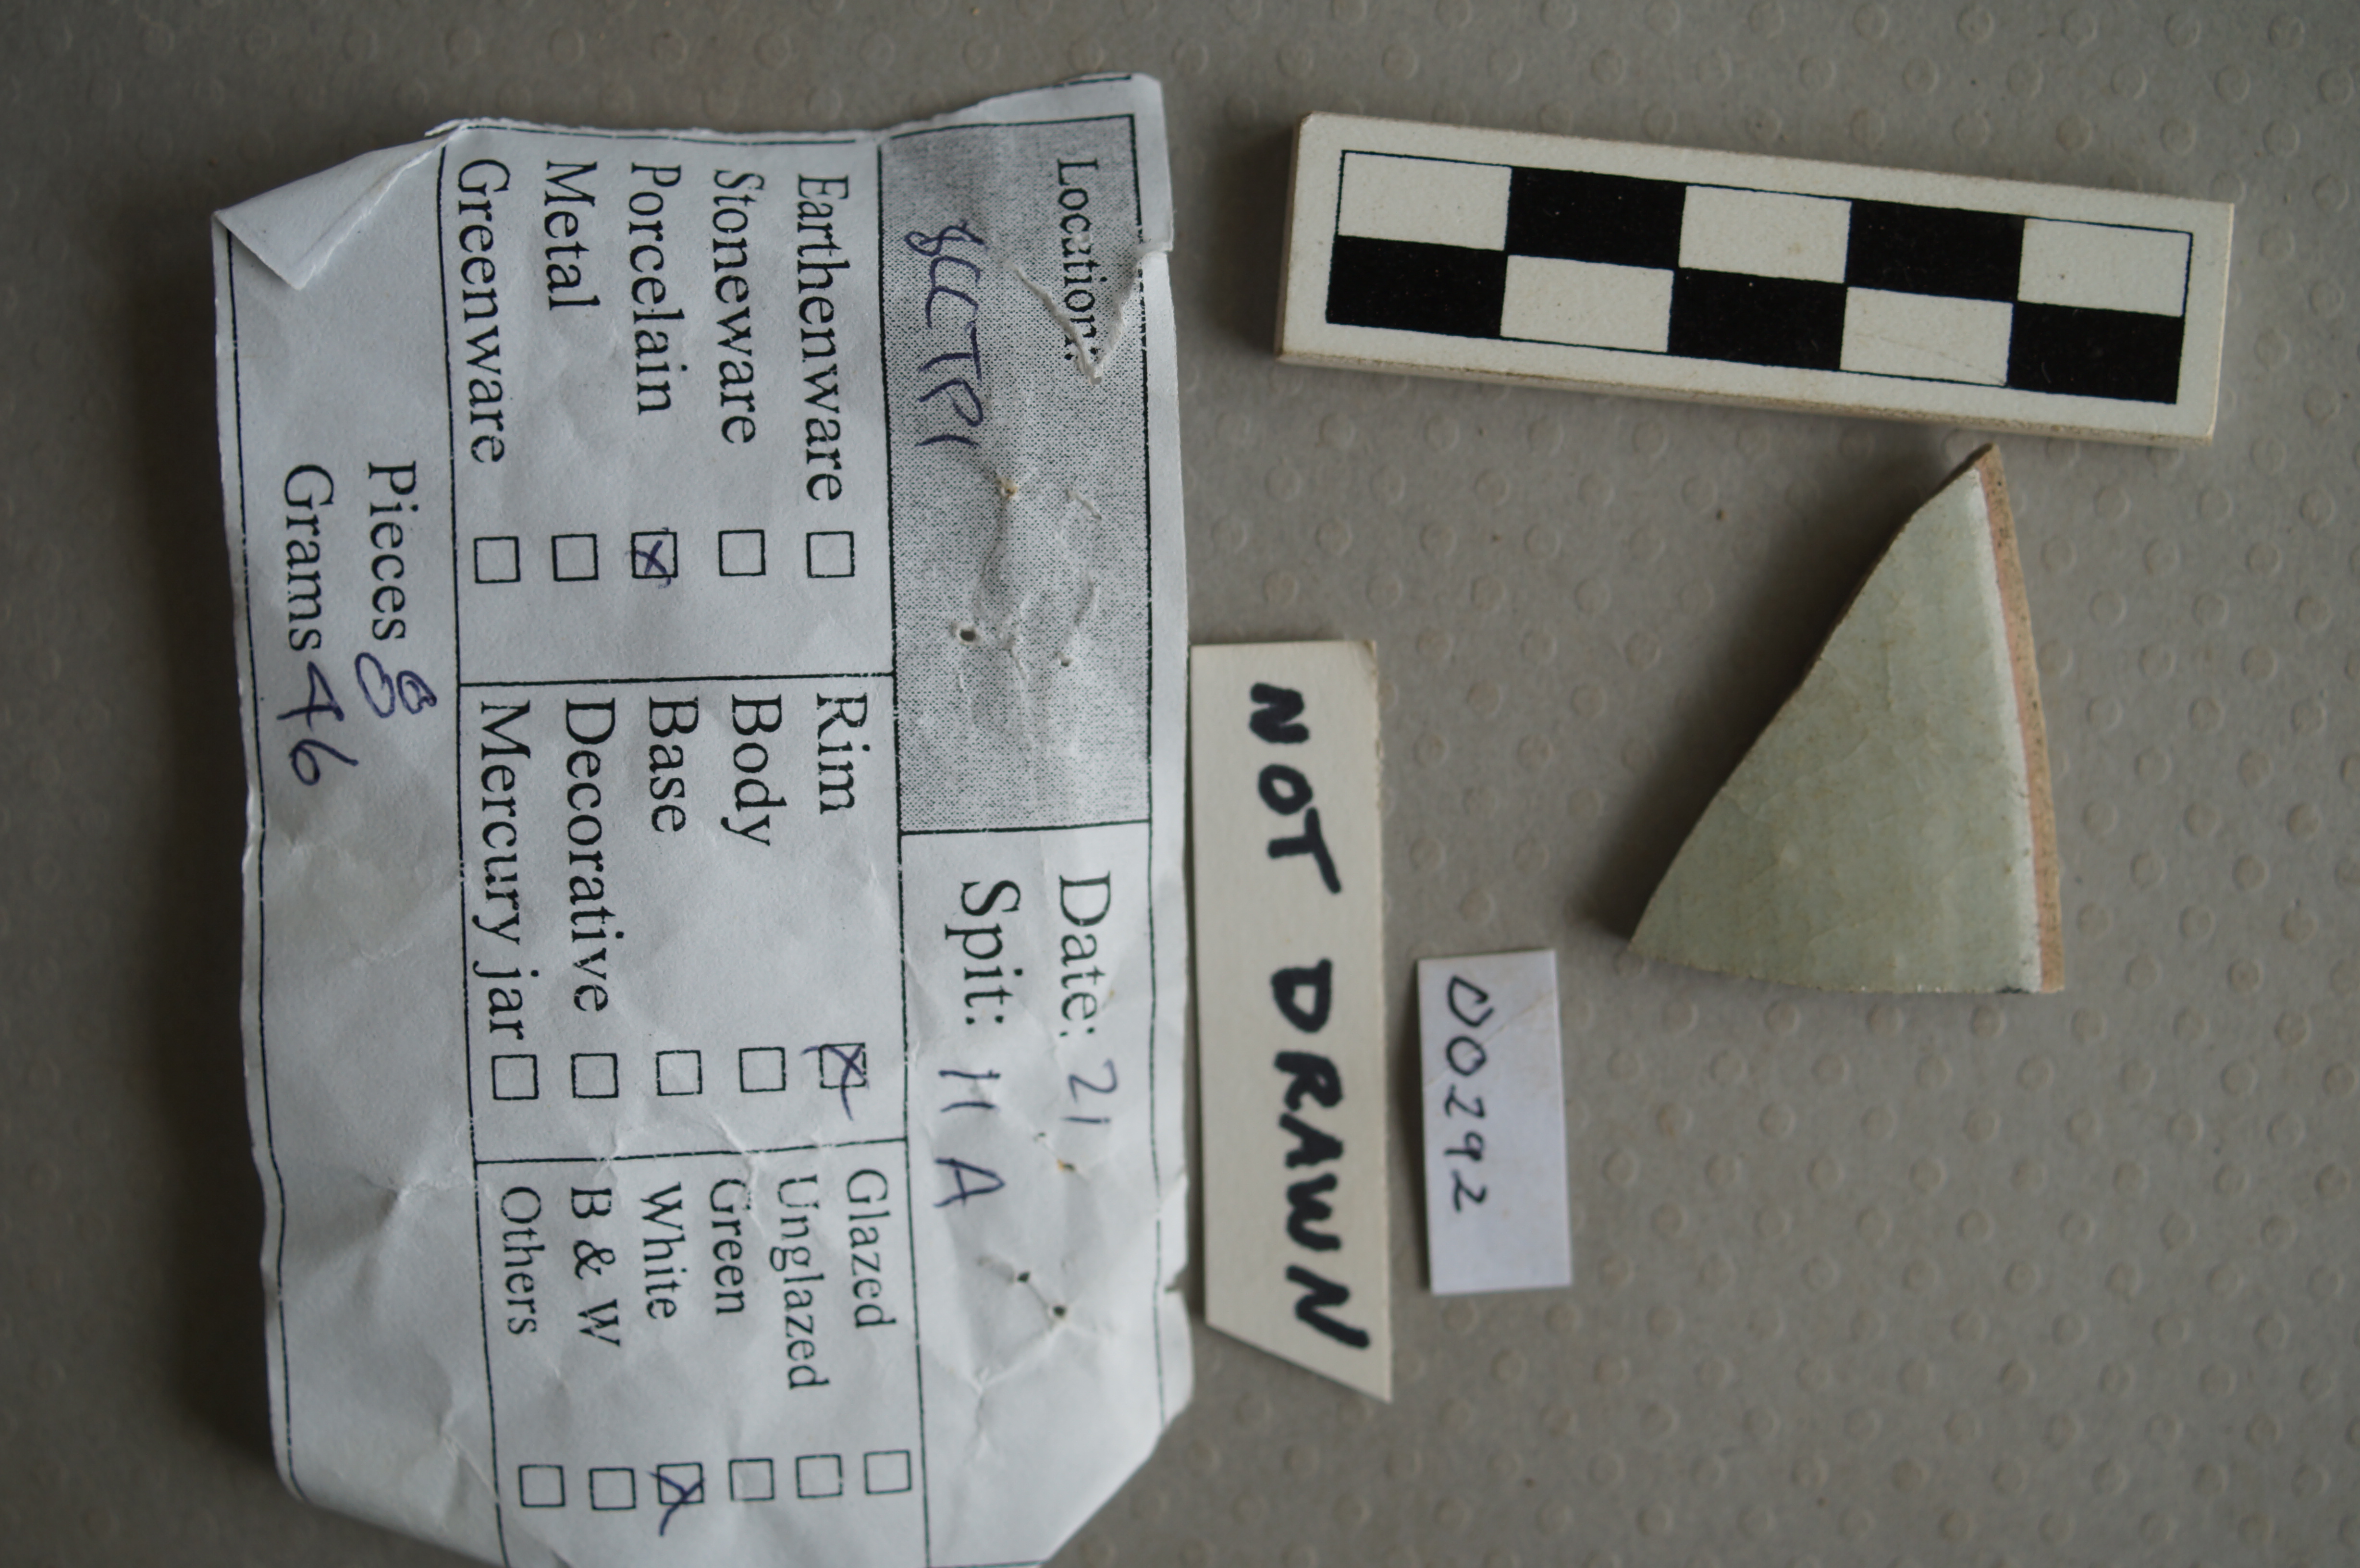 00292
NOT DRAWN
Location:
SCCTP1
Date: 21
Spit: 11 A
Earthenware ☐
Stoneware ☐
Porcelain ☒
Metal ☐
Greenware ☐
Rim ☒
Body ☐
Base ☐
Decorative ☐
Mercury jar ☐
Glazed ☐
Unglazed ☐
Green ☐
White ☒
B & W ☐
Others ☐
Pieces 8
Grams 46